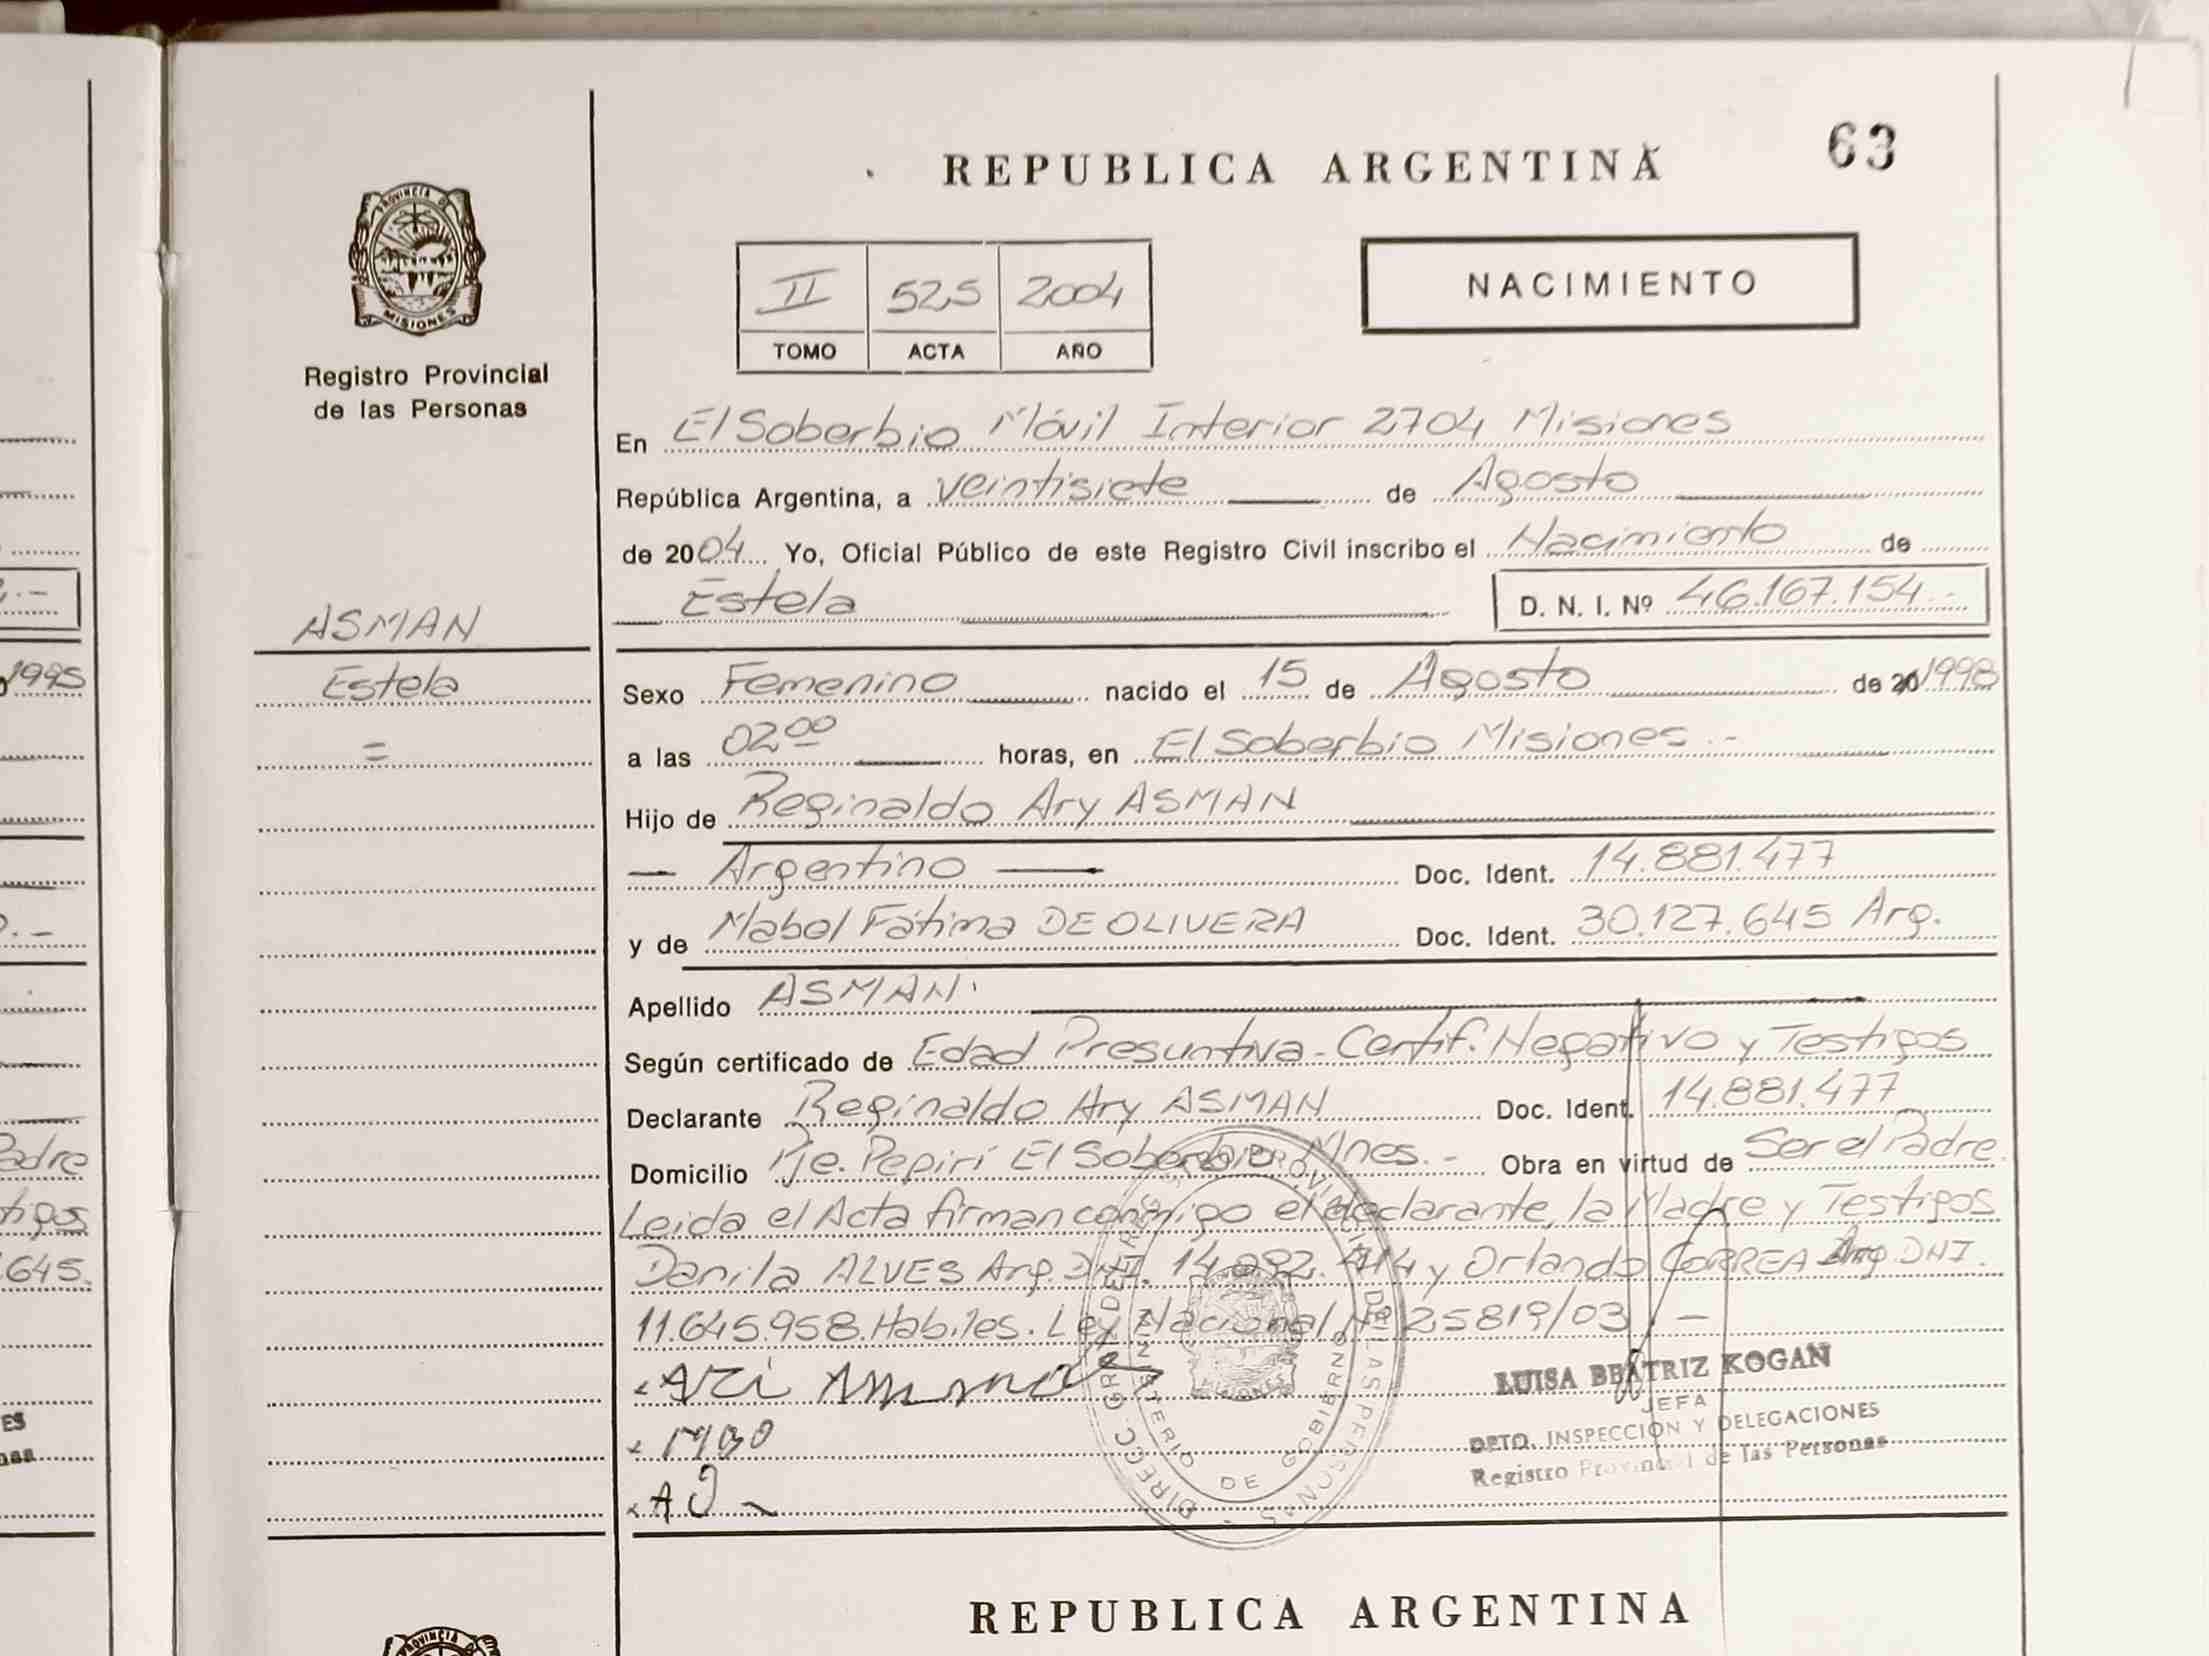 63
REPUBLICA ARGENTINA
PROVINCIA DE
MISIONES
Registro Provincial
de las Personas
II 525 2004
TOMO ACTA AÑO
NACIMIENTO
En El Soberbio Móvil Interior 2704 Misiones
República Argentina, a veintisiete de Agosto
de 2004 Yo, Oficial Público de este Registro Civil inscribo el Nacimiento de
Estela D. N. I. Nº 46.167.154.-
ASMAN
Estela
=
Sexo Femenino nacido el 15 de Agosto de 20 1998
a las 02 00 horas, en El Soberbio Misiones.-
Hijo de Reginaldo Ary ASMAN
Argentino Doc. Ident. 14.881.477
y de Mabel Fátima DE OLIVERA Doc. Ident. 30.127.645 Arg.
Apellido ASMAN.
Según certificado de Edad Presuntiva - Certif. Negativo y Testigos
Declarante Reginaldo Ary ASMAN Doc. Ident. 14.881.477
Domicilio Pje. Pepirí El Soberbio Mnes.- Obra en virtud de Ser el Padre.
Leida el Acta firman conmigo el declarante, la Madre y Testigos
Danila ALVES Arg. DNI. 14. y Orlando CORREA Arg DNI.
11.645.958. Habiles. Ley Nacional Nº 25819/03.-
LUISA BEATRIZ KOGAN
JEFA
DPTO. INSPECCIÓN Y DELEGACIONES
Registro Provincial de las Personas
MINISTERIO DE GOBIERNO
1995
Padre
tigos
645.
ES
nas
REPUBLICA ARGENTINA
PROVINCIA D